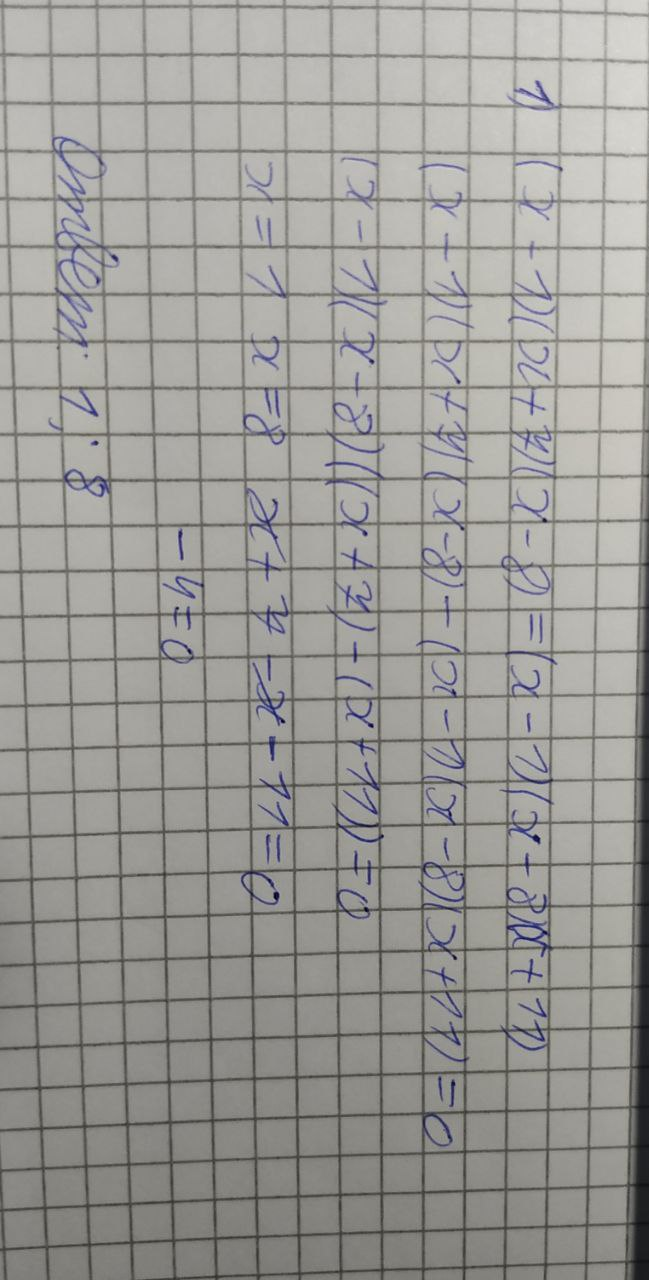 1) (x-1)(x+7)(x-8)=(x-1)(x-8)(x+11)
(x-1)(x+7)(x-8)-(x-1)(x-8)(x+11)=0
(x-1)(x-8)((x+7)-(x+11))=0
x=1 x=8 x+7-x-11=0
-4=0
Ответ: 1; 8